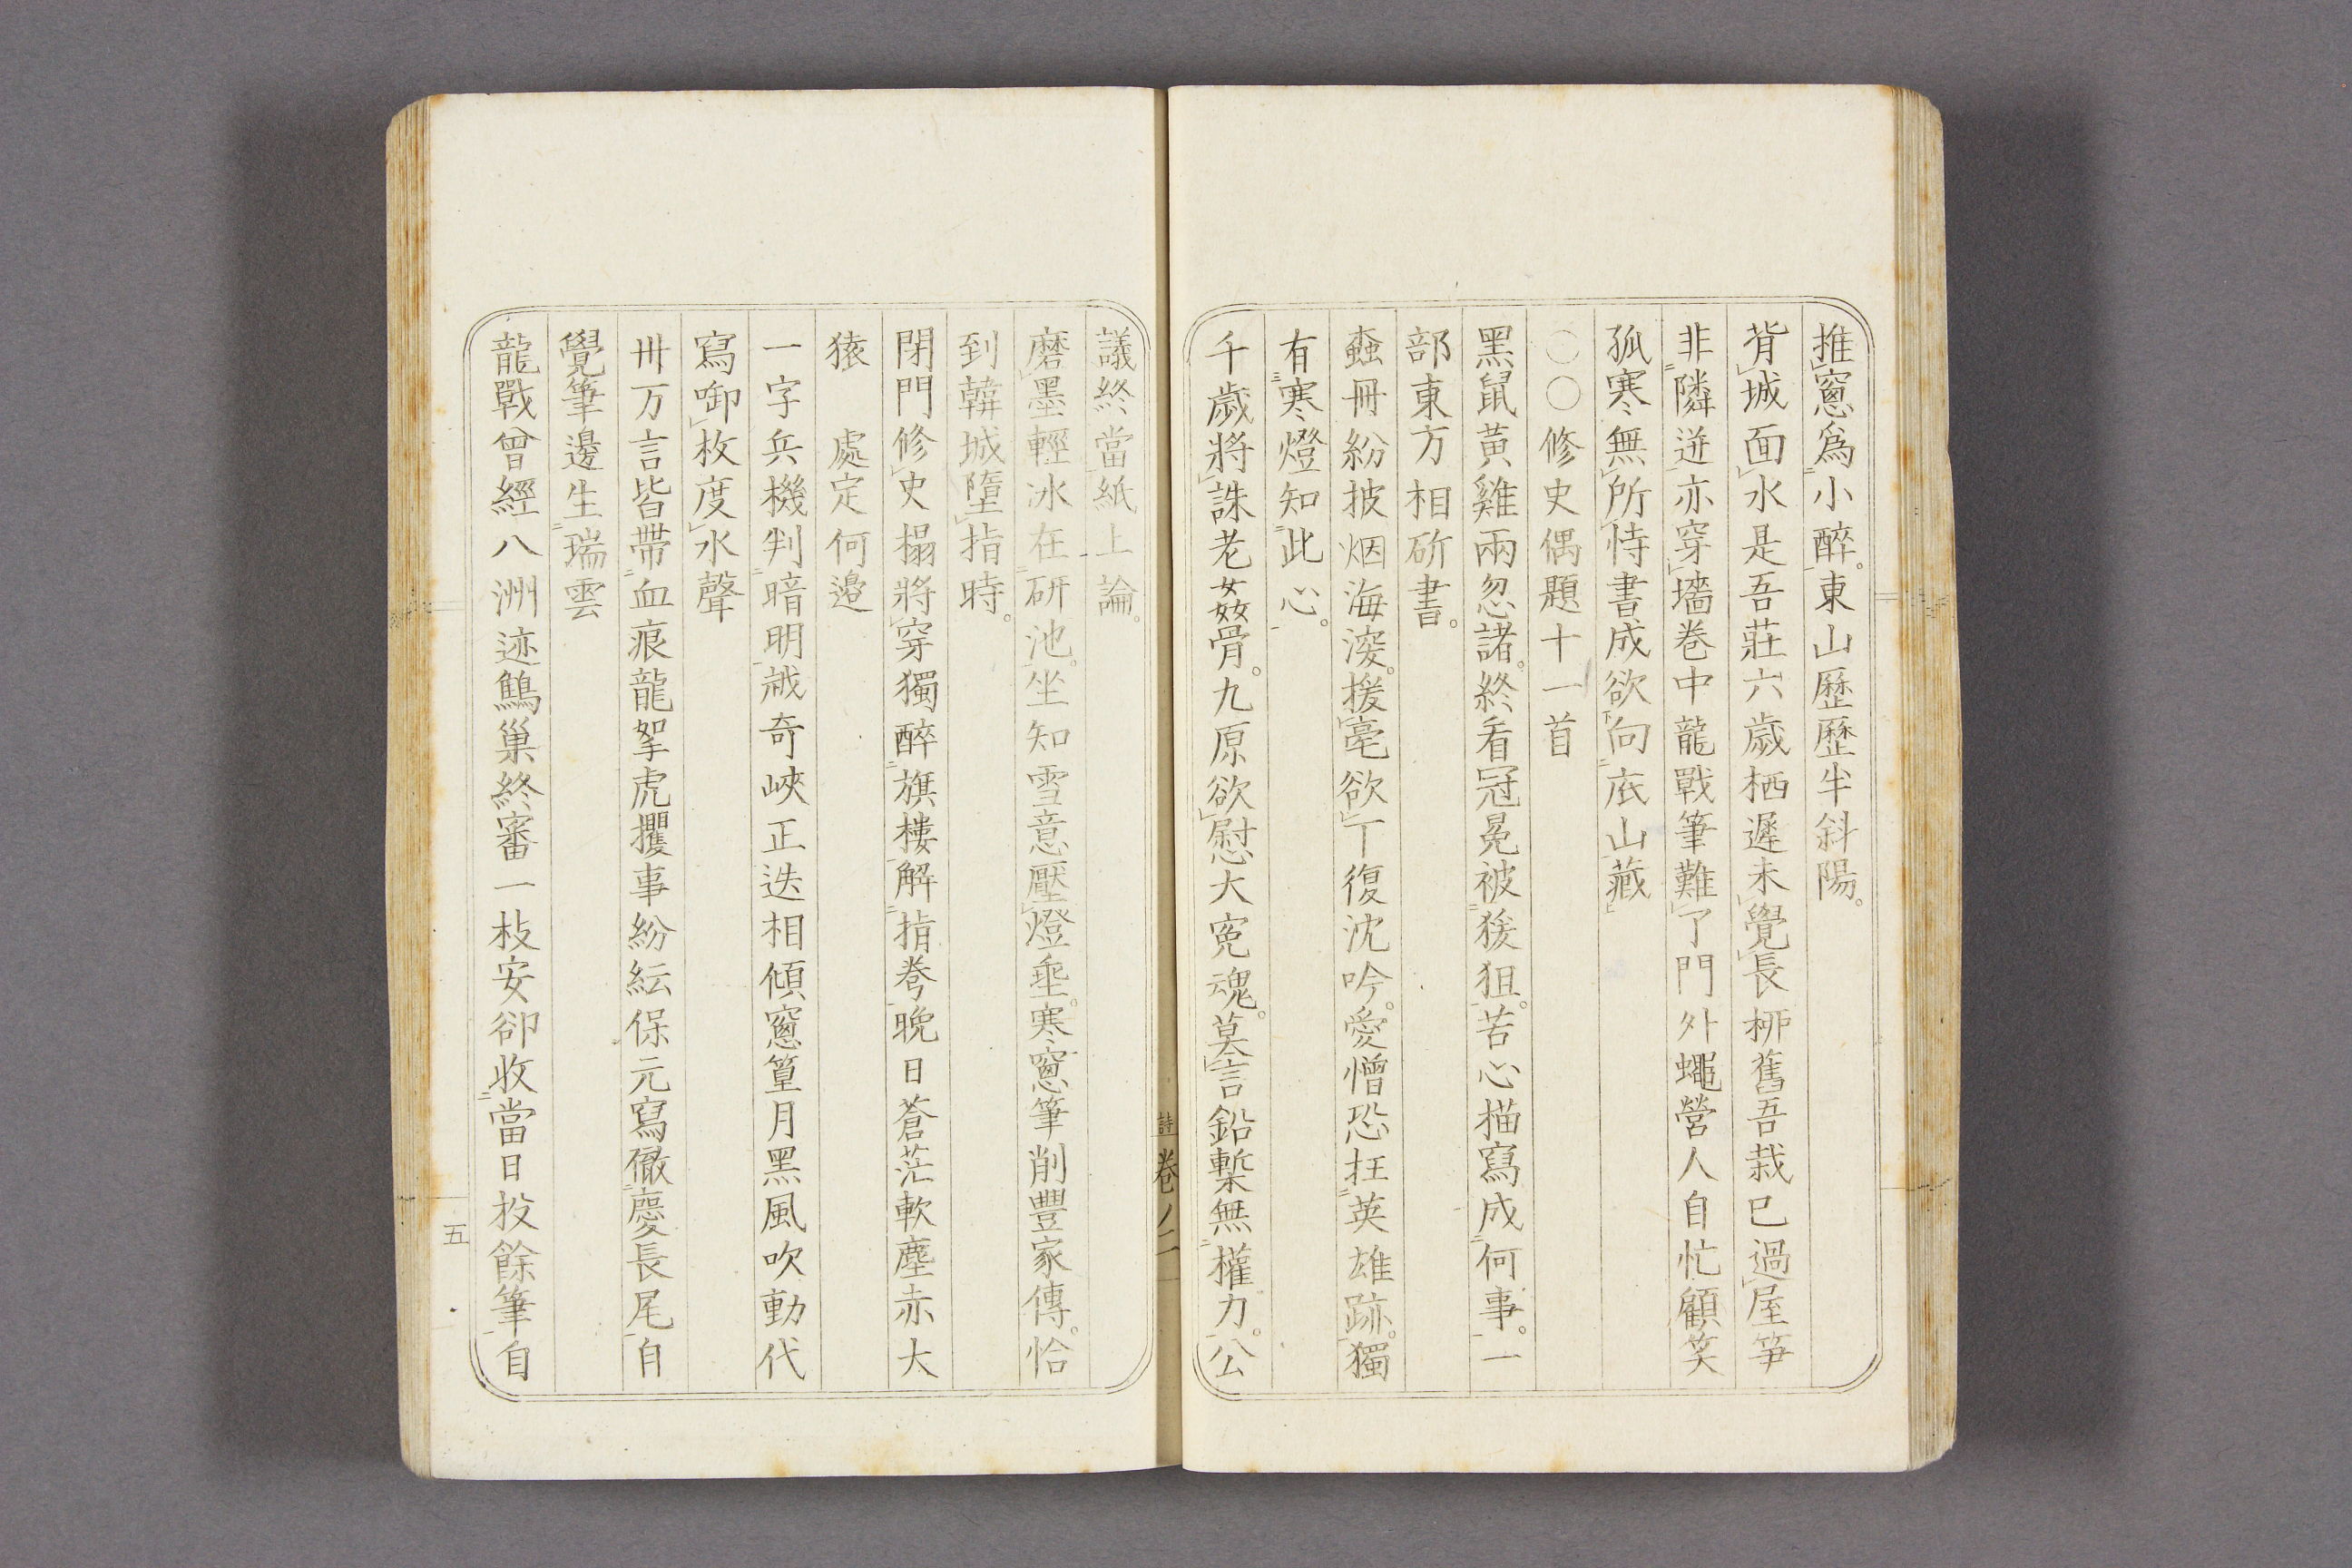 推窓爲小醉。東山歷歷半斜陽。
背城面水是吾莊六歲栖遲未覺長栁舊吾栽已過屋笋
非隣迸亦穿墻卷中龍戰筆難了門外蠅營人自忙顧笑
孤寒無所恃書成欲向底山藏
〇〇修史偶題十一首
黑鼠黃雞兩忽諸。終看冠冕被猨狙。苦心描寫成何事。一
部東方相斫書。
蟲冊紛披烟海深。援毫欲下復沈吟。愛憎恐抂英雄跡。獨
有寒燈知此心。
千歲將誅老姦骨。九原欲慰大寃魂。莫言鉛槧無權力。公
議終當紙上論。
磨墨輕冰在研池。坐知雪意壓燈垂。寒窓筆削豐家傳。恰
到韓城墮指時。
閉門修史搨將穿獨醉旗樓解指拳晚日蒼茫軟塵赤大
猿處定何邉
一字兵機判暗明越奇峽正迭相傾窓篁月黑風吹動代
寫啣枚度水聲
卅万言皆帶血痕龍拏虎攫事紛紜保元寫徹慶長尾自
覺筆邊生瑞雲
龍戰曾經八洲迹鷦巢終審一枝安卻收當日投餘筆自
詩 卷ノ二
五